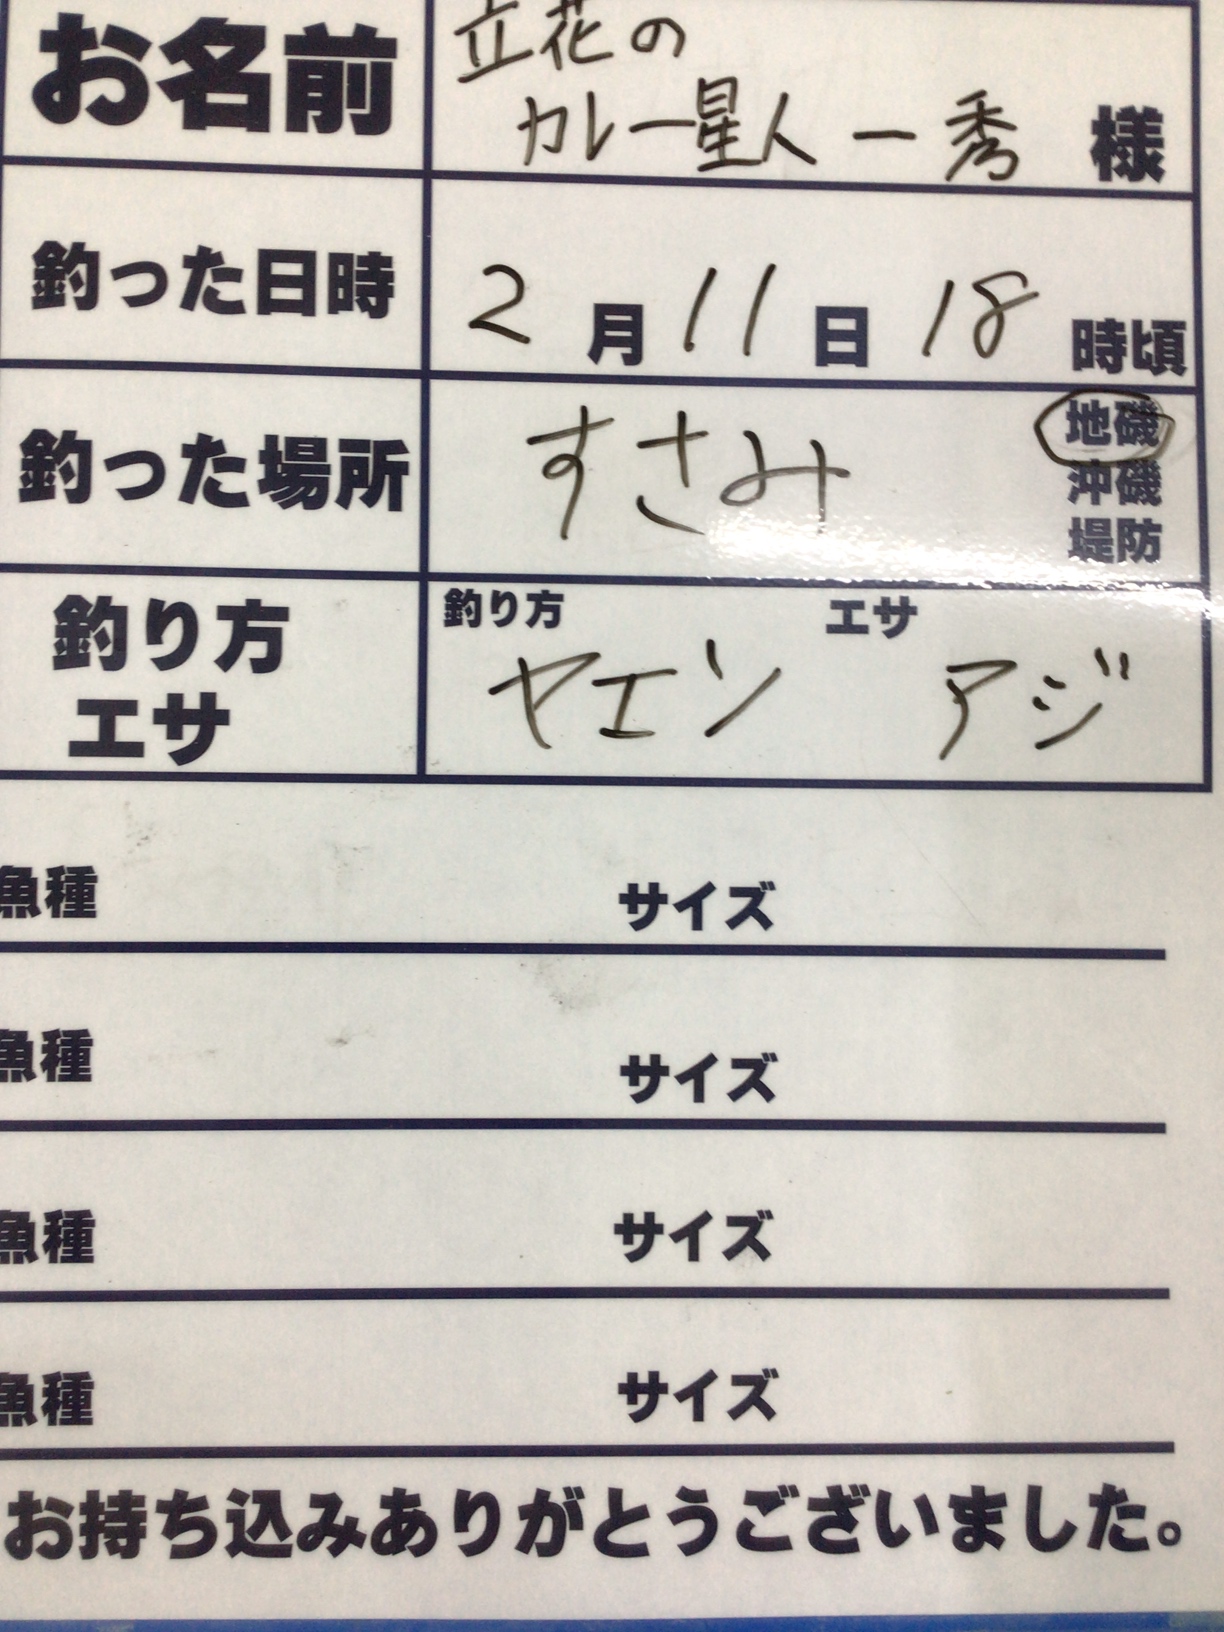 お名前 立花の
カレー星人一秀 様
釣った日時 2月11日18時頃
釣った場所 すさみ 地磯
沖磯
堤防
釣り方 エサ
釣り方 ヤエン エサ アジ
魚種 サイズ
魚種 サイズ
魚種 サイズ
魚種 サイズ
お持ち込みありがとうございました。